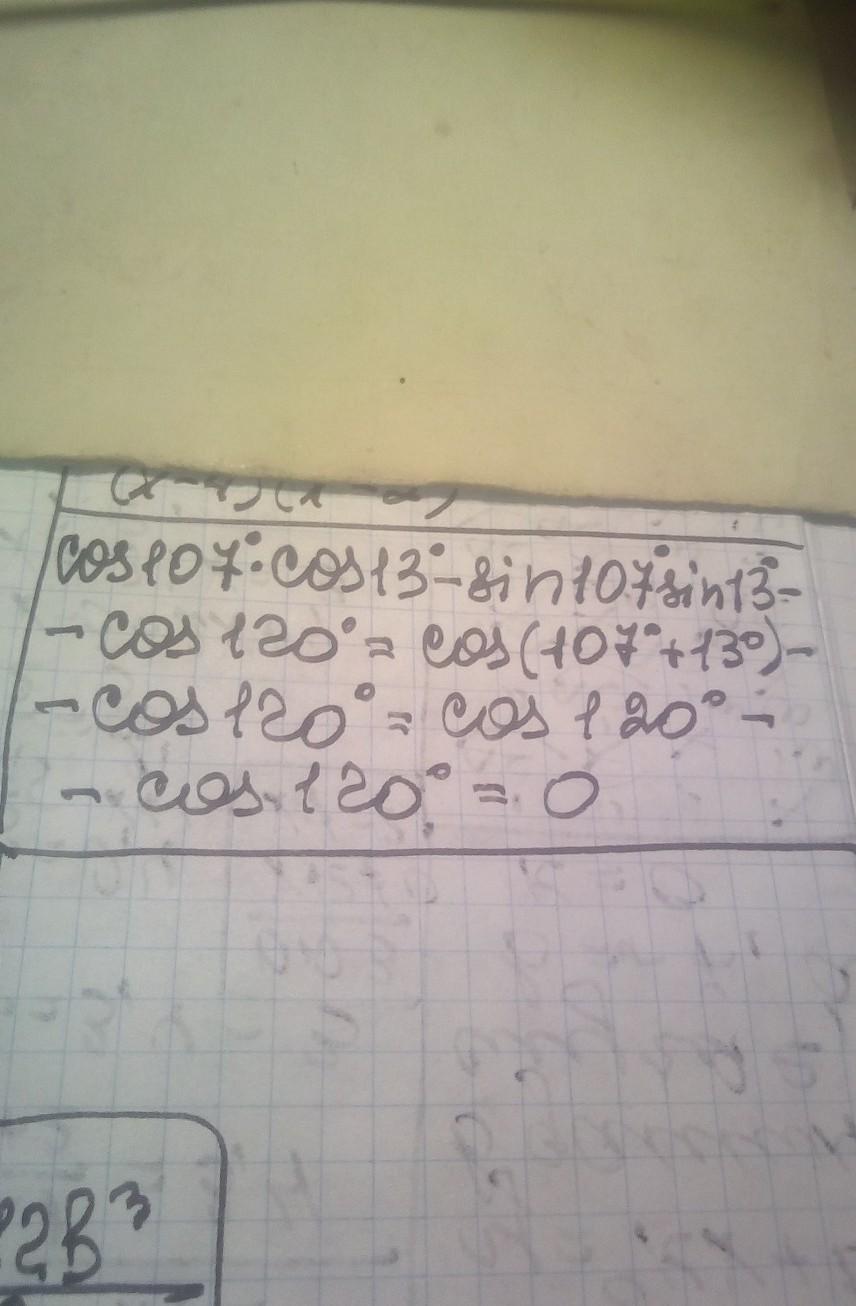 cos107°·cos13°-sin107°sin13°-
-cos120°= cos(107°+13°)-
-cos120°= cos120°-
- cos120° = 0
2B³